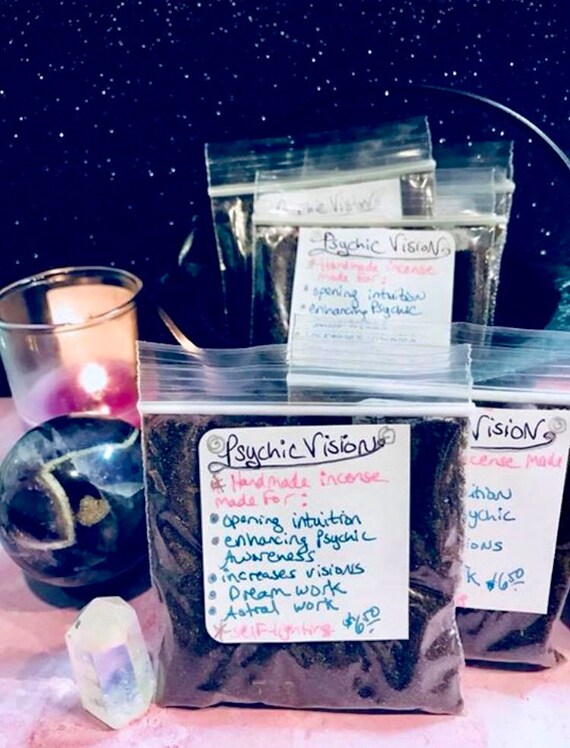 Psychic Vision
Psychic Vision
* Handmade incense
made for:
• opening intuition
• enhancing Psychic
Vision
cense made
ition
ychic
ions
k $6.50
Psychic Vision
* Handmade incense
made for:
• opening intuition
• enhancing Psychic
Awareness
• increases visions
• Dream work
• Astral work
* self-lighting $6.50